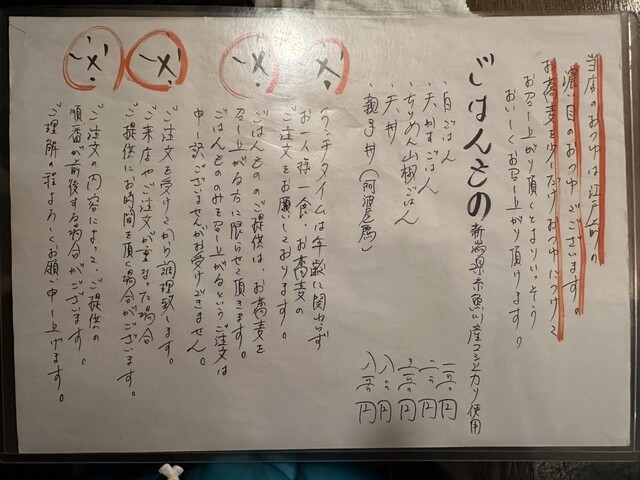 当店のおつゆは江戸前の
濃い目のおつゆでございます。
お蕎麦を少しだけおつゆにつけて
お召し上がり頂くとよりいっそう
おいしくお召し上がり頂けます。
ごはんもの 新潟県糸魚川産コシヒカリ使用
・白ごはん 二百円
・天かすごはん
・ちりめん山椒ごはん 三百円
・天丼 八百円
・親子丼(阿波尾鶏) 八百円
ランチタイムは年齢に関わらず
お一人様一食、お蕎麦の
ご注文をお願いしております。
ごはんもののご提供は、お蕎麦を
召し上がる方に限らせて頂きます。
ごはんもののみを召し上がるというご注文は
申し訳ございませんがお受けできません。
ご注文を受けてから調理致します。
ご来店やご注文が重なった場合
ご提供にお時間を頂く場合がございます。
ご注文の内容によって、ご提供の
順番が前後する場合がございます。
ご理解の程よろしくお願い申し上げます。